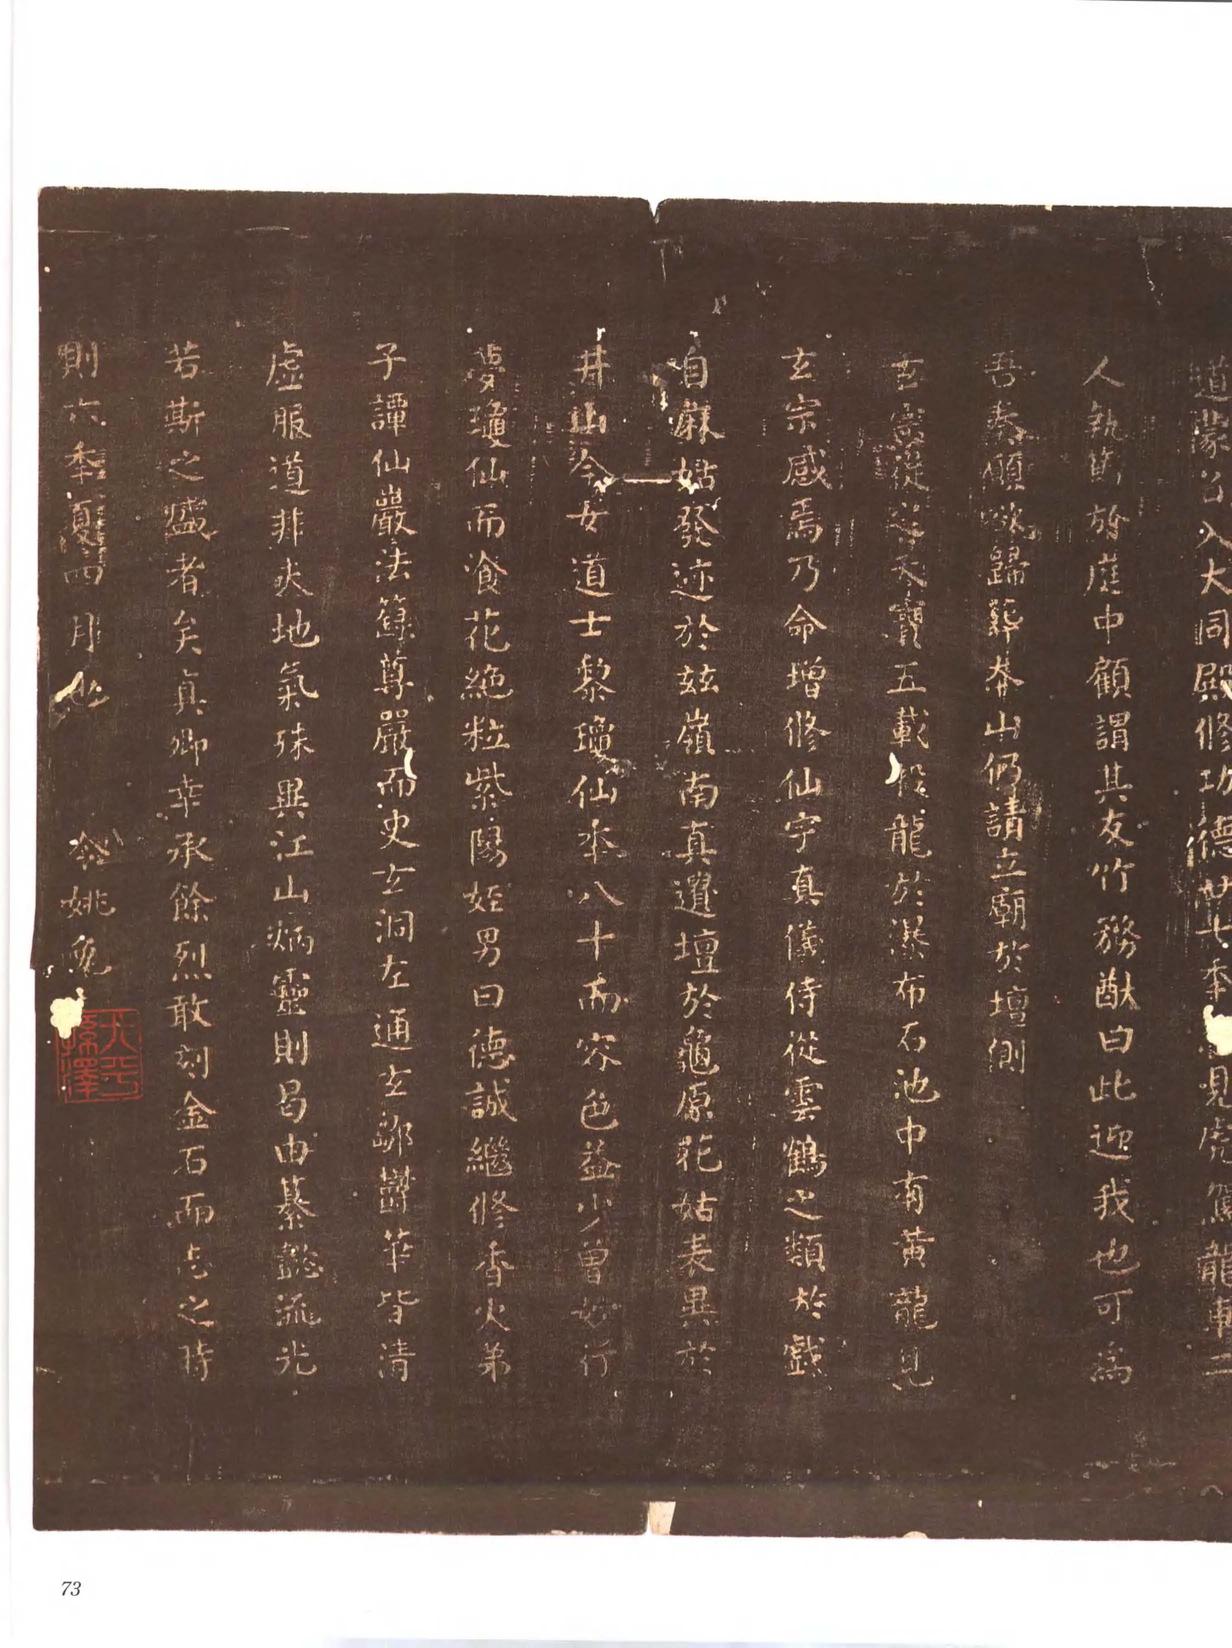 道蒙召入大同殿修功德廿七季忽見虎駕龍車二
人執節於庭中顧謂其友竹務猷曰此迎我也可為
吾奏願歸葬本山仍請立廟於壇側
玄宗從之天寶五載投龍於瀑布石池中有黃龍見
玄宗感焉乃命增修仙宇真儀侍從雲鶴之類於戲
自麻姑發迹於茲嶺南真遺壇於龜原花姑表異於
井山今女道士黎瓊仙年八十而容色益少曾妙行
夢瓊仙而飡花絕粒紫陽姪男曰德誠繼修香火弟
子譚仙巖法籙尊嚴而史玄洞左通玄鄒鬱華皆清
虛服道非夫地氣殊異江山炳靈則曷由纂懿流光
若斯之盛者矣真卿幸承餘烈敢刻金石而志之時
則六季夏四月也
姚
73